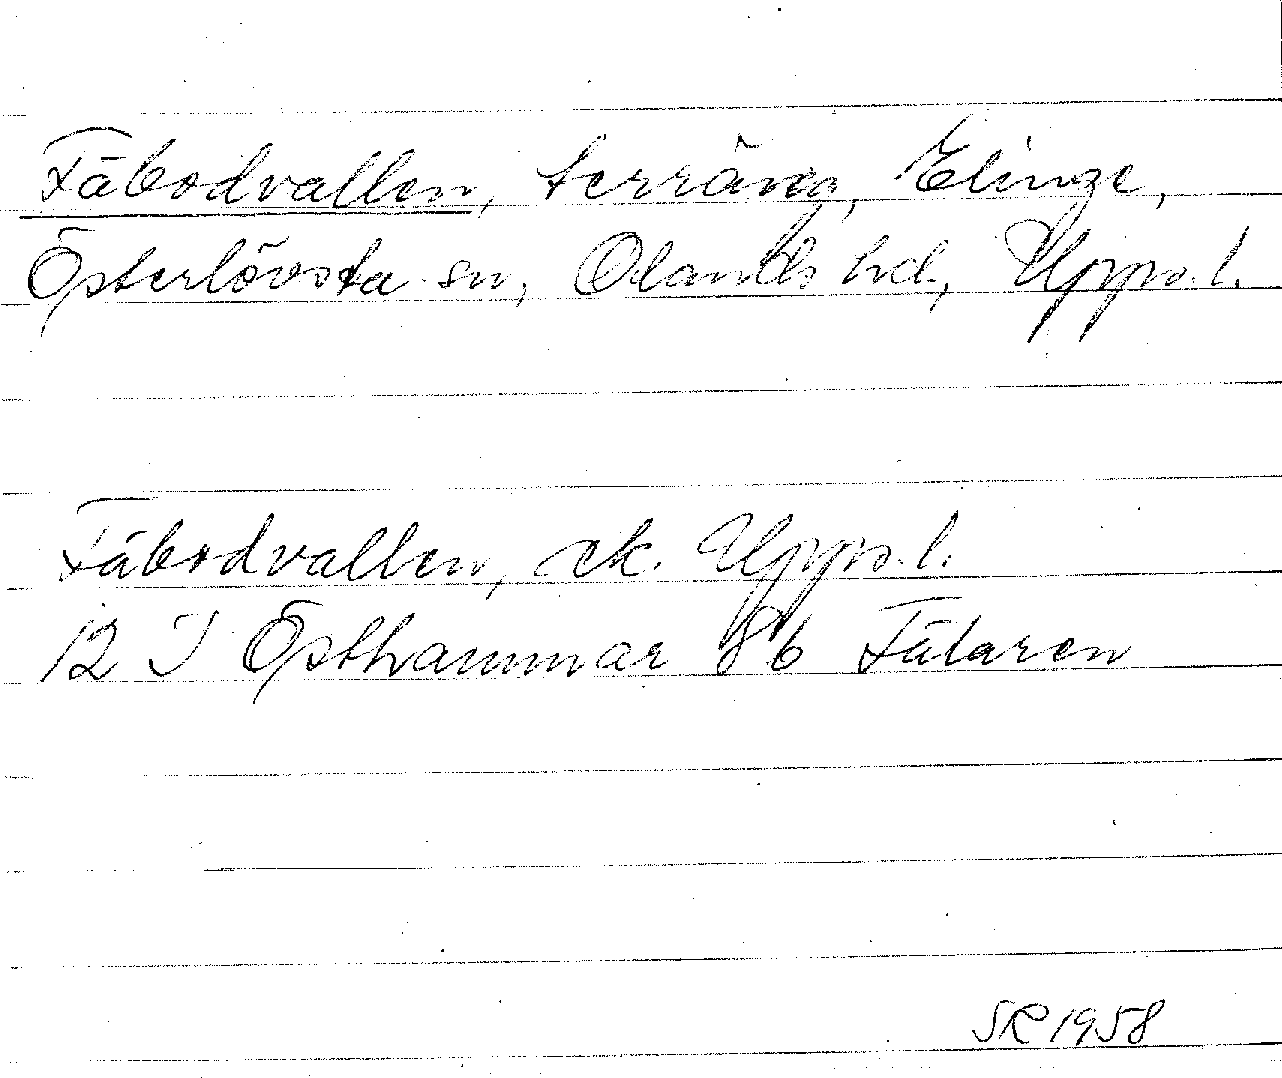 Fäbodvallen, terräng, Elinge,
Österlövsta sn, Olands hd., Upps. l.
Fäbodvallen, ek. Upps. l.
12 I Östhammar 8b Fälaren
SR 1958